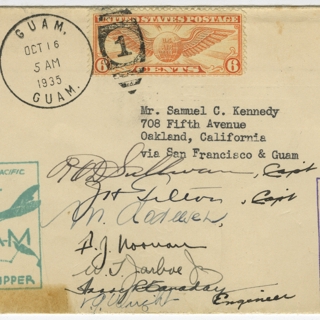 GUAM.
OCT 16
5 AM
1935
GUAM.
1
UNITED STATES POSTAGE
6 CENTS 6
Mr. Samuel C. Kennedy
708 Fifth Avenue
Oakland, California
via San Francisco & Guam.
PACIFIC
AM
IPPER
Sullivan, Capt
Capt
F. J. Noonan
W. T. Jarboe Jr
Engineer